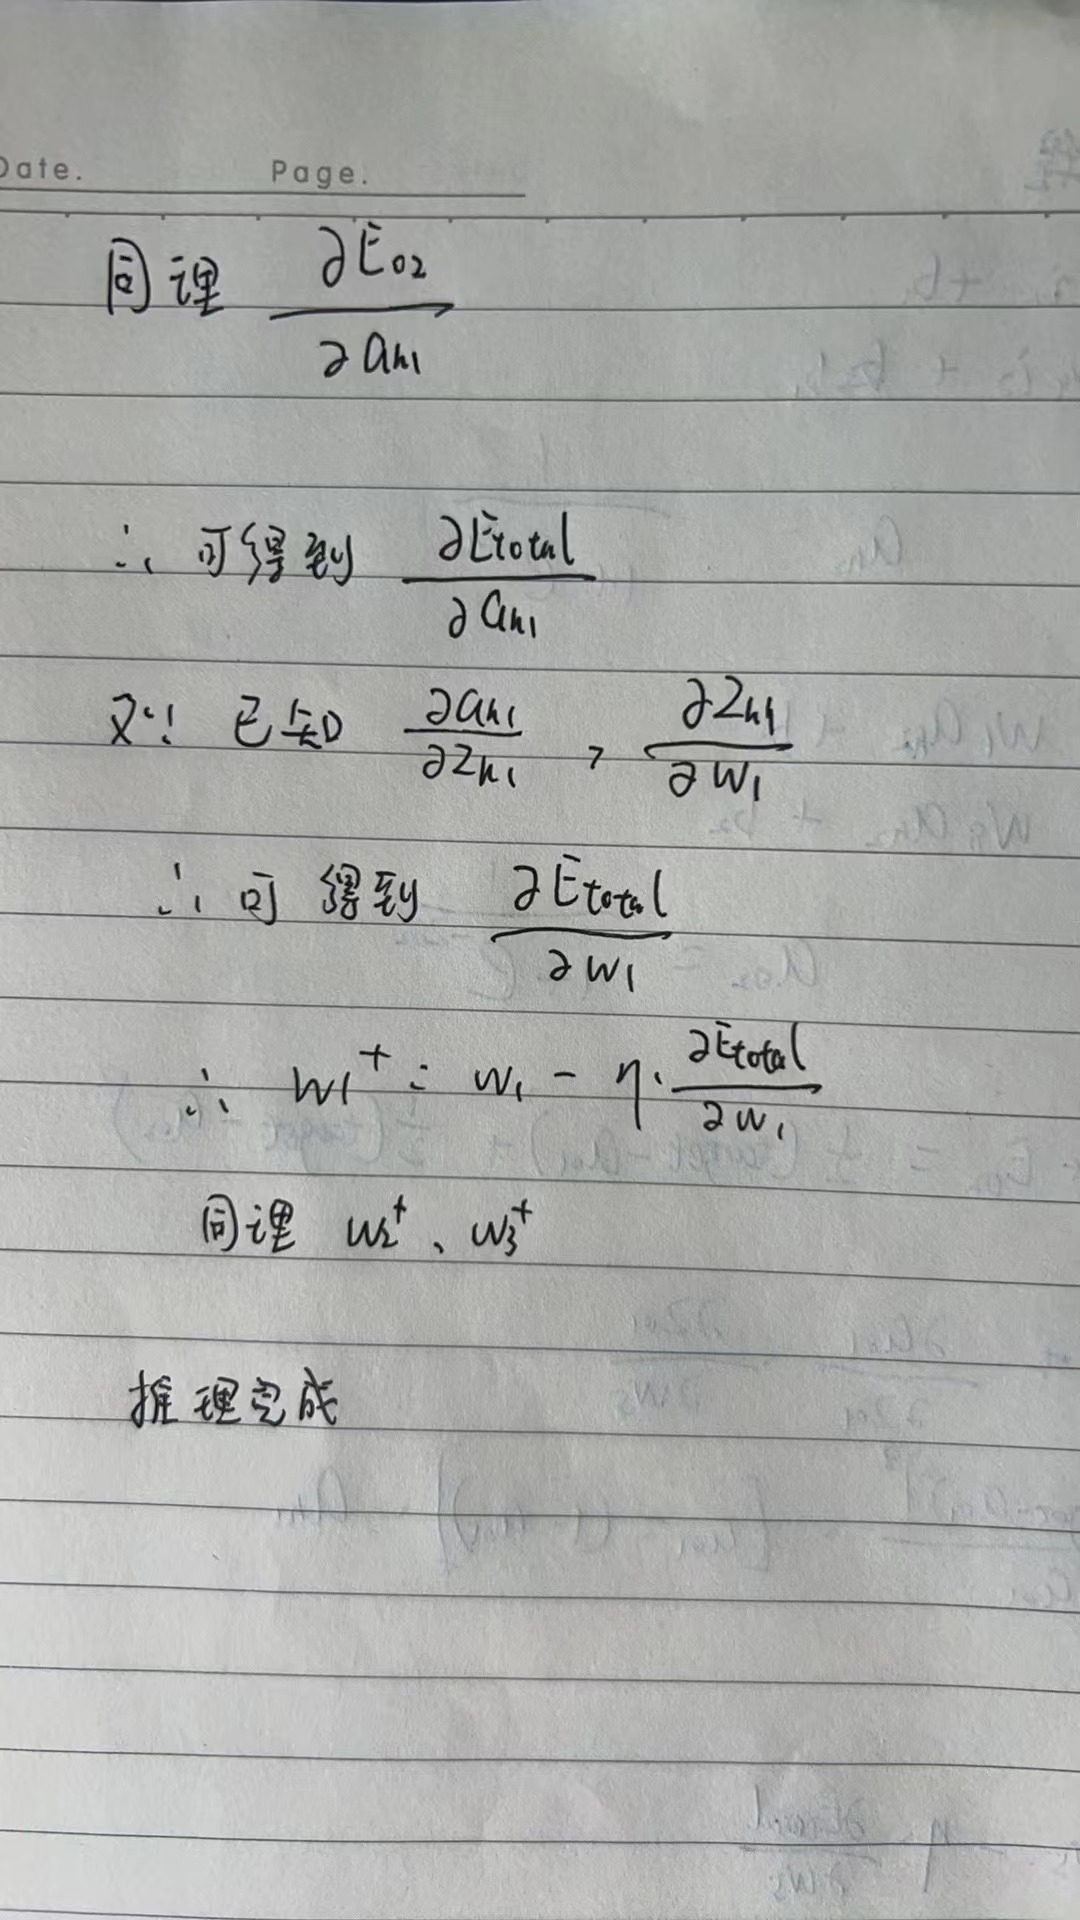 Date. Page.
同理 ∂E₀₂/∂aₕ₁
∴ 可得到 ∂Etotal/∂aₕ₁
又∵ 已知 ∂aₕ₁/∂Zₕ₁ , ∂Zₕ₁/∂W₁
∴ 可得到 ∂Etotal/∂W₁
∴ W₁⁺ = W₁ - η · ∂Etotal/∂W₁
同理 W₂⁺、W₃⁺
推理完成